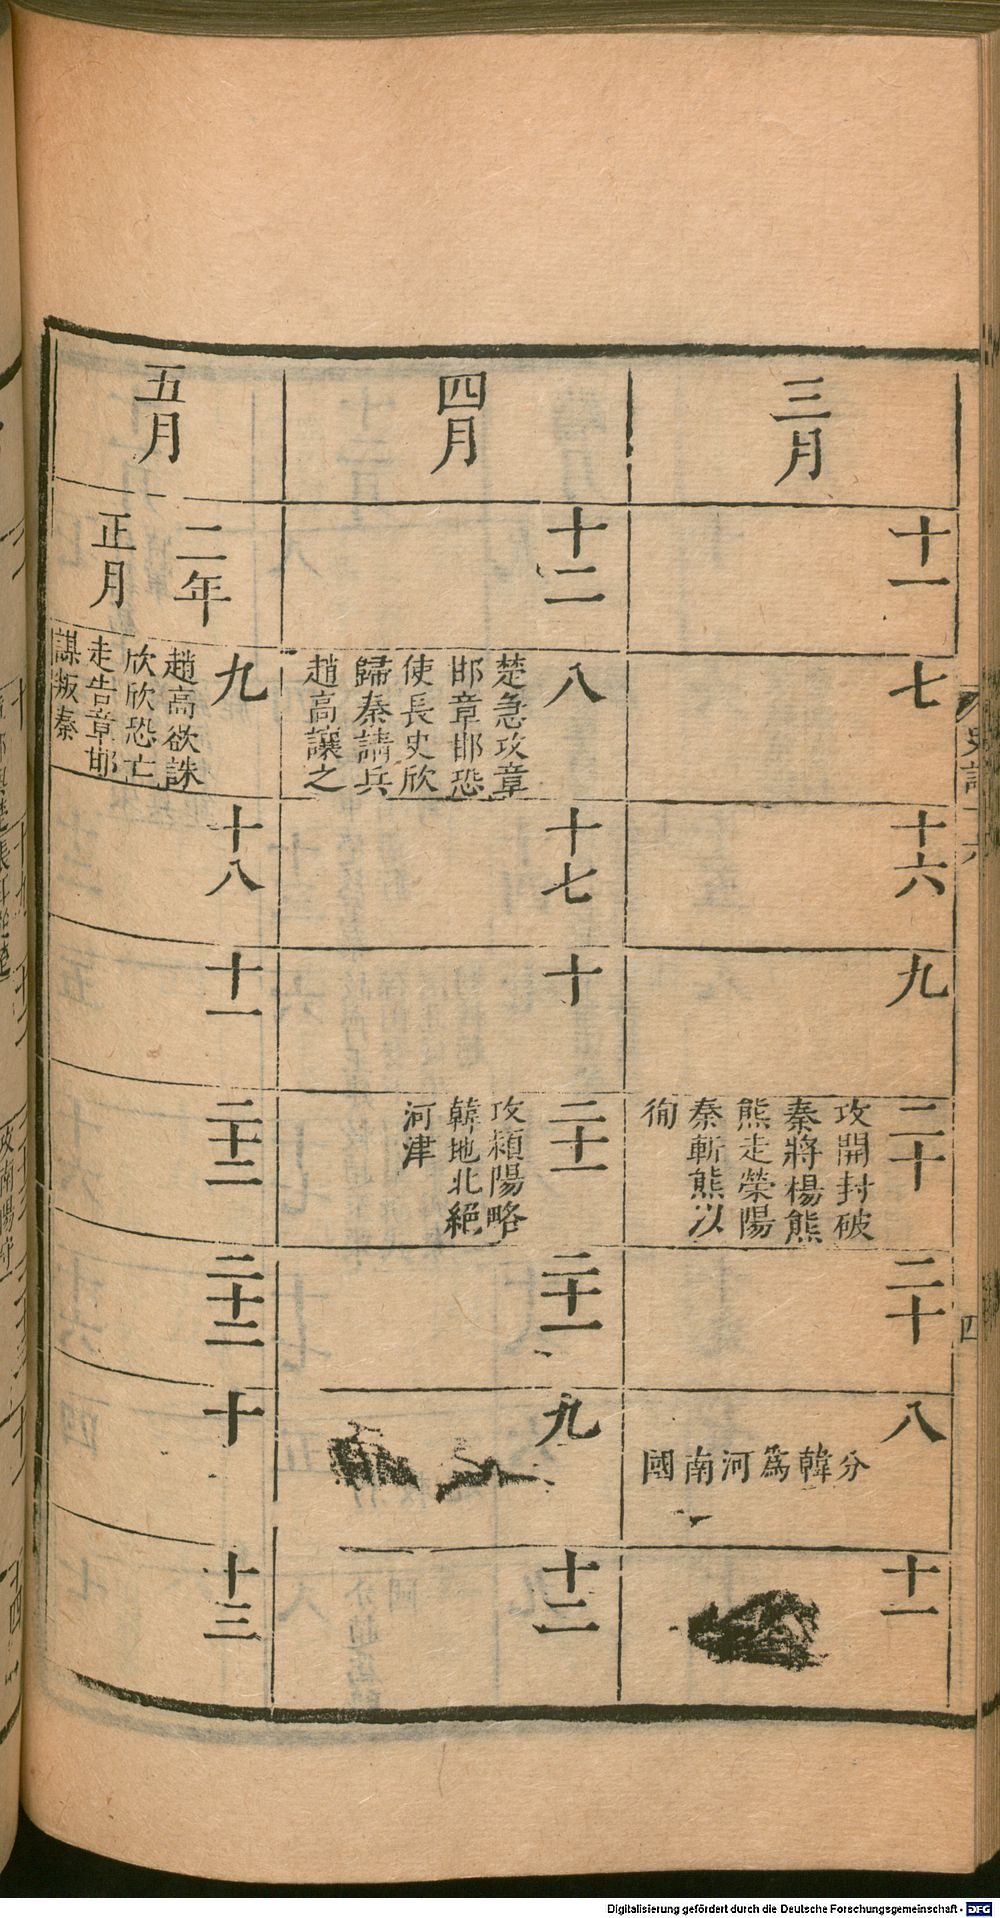 三月
十一
七
十六
九
二十
攻開封破
秦將楊熊
熊走滎陽
秦斬熊以
徇
二十
八
分韓爲河南國
十一
四月
十二
八
楚急攻章
邯章邯恐
使長史欣
歸秦請兵
趙高讓之
十七
十
二十一
攻潁陽略
韓地北絕
河津
二十一
九
十二
五月
二年
正月
九
趙高欲誅
欣欣恐亡
走告章邯
謀叛秦
十八
十一
二十二
二十二
十
十三
史記十六
四
Digitalisierung gefördert durch die Deutsche Forschungsgemeinschaft - DFG